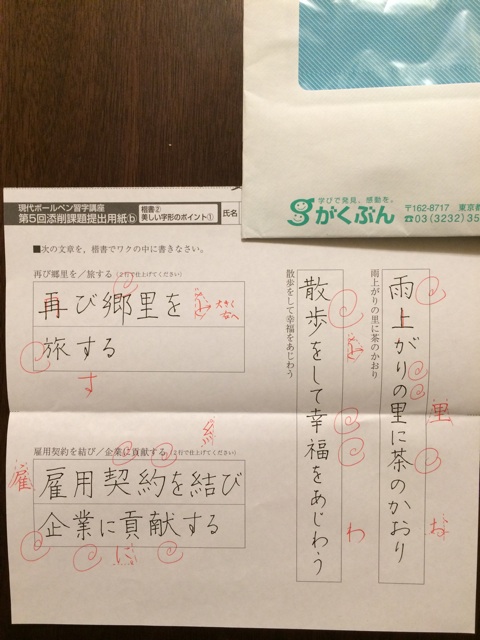 学びで発見。感動を。
がくぶん
〒162-8717 東京都
☎03(3232)35
現代ボールペン習字講座
第5回添削課題提出用紙b
楷書②
美しい字形のポイント①
氏名
■次の文章を、楷書でワクの中に書きなさい。
再び郷里を／旅する（2行で仕上げてください）
再び郷里を
大きく
右へ
旅する
す
雇用契約を結び／企業に貢献する（2行で仕上げてください）
糸
雇
雇用契約を結び
企業に貢献する
に
雨上がりの里に茶のかおり
雨上がりの里に茶のかおり
里
お
散歩をして幸福をあじわう
散歩をして幸福をあじわう
を
わ